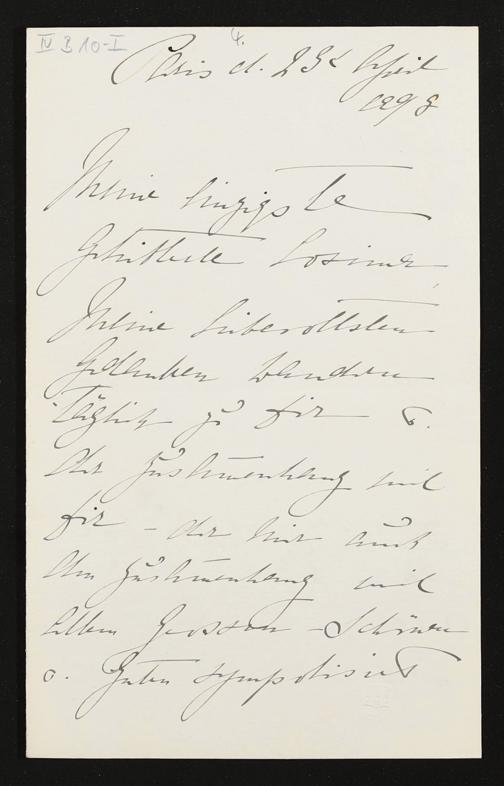 IV B 10-I
4.
Paris d. 23t April
1898
Meine Einzigste
Geliebteste Cosima,
Meine liebevollsten
Gedanken wandern
täglich zu Dir u.
der Zusammenhang mit
Dir – der mir auch
den Zusammenhang mit
allem Grossen – Schönen
u. Guten sympolisirt